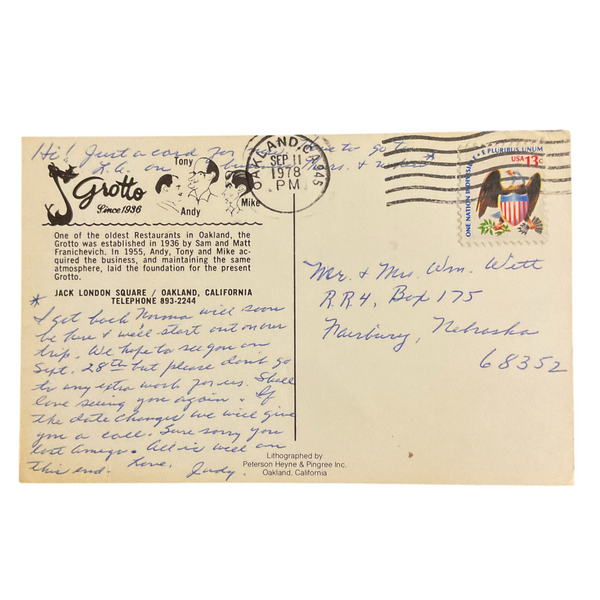 Hi! Just a card for to go to
L.A. on business Thurs. & when *
Tony
Grotto
Since 1936
Andy
Mike
One of the oldest Restaurants in Oakland, the
Grotto was established in 1936 by Sam and Matt
Franichevich. In 1955, Andy, Tony and Mike ac-
quired the business, and maintaining the same
atmosphere, laid the foundation for the present
Grotto.
JACK LONDON SQUARE / OAKLAND, CALIFORNIA
TELEPHONE 893-2244
*
I get back Norma will soon
be here & we'll start out on our
trip. We hope to see you on
Sept. 28th but please don't go
to any extra work for us. Shall
love seeing you again. If
the date changes we will give
you a call. Sure sorry you
lost Amigo. All is well on
this end. Love, Judy.
OAKLAND, CA 945
SEP 11
1978
PM
E PLURIBUS UNUM
USA 13c
ONE NATION INDIVISIBLE
Mr. & Mrs. Wm. Witt
R.R. 4, Box 175
Fairbury, Nebraska
68352
Lithographed by
Peterson Heyne & Pingree Inc.
Oakland, California